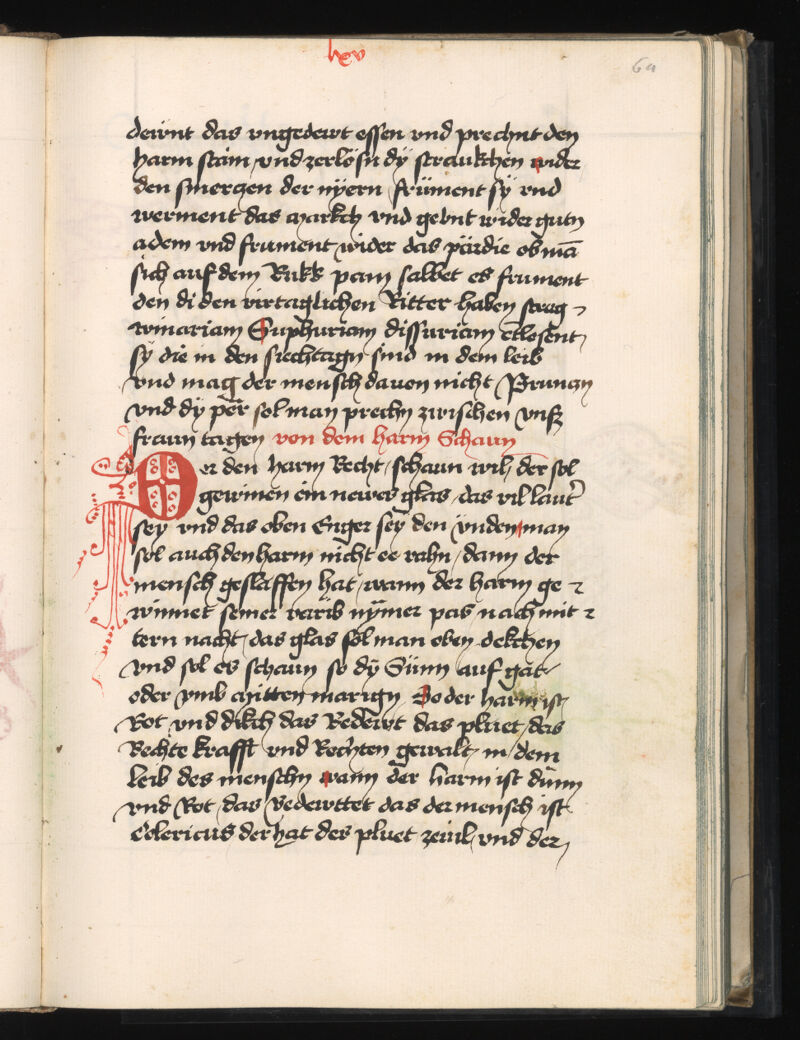 lxv
64
dewnt das vngedewt essen vnd prechnt den
harm stain vnd zerlösn dÿ straukchen wider
den smerczen der nÿern frument sÿ vnd
werment das markch vnd gebnt wider gutn
adem vnd frument wider das pärdie ob mā
sich auf dem Rukk pam salbet es frument
den di den virtaglichen Ritter haben strag
winariam Suphuriam dissuriam etlosent
sÿ die in den siechtagn sind in dem leib
vnd mag der mensch dauon nicht Prunczn
vnd dÿ per sol man prechn zwischen vnsz
frawn tagen von dem harm Schawn
Wer den harm Recht schawn wil der sol
gewinen ein newes glas das vil lautr
sey vnd das oben Enger sey den vnden man
sol auch den harm nicht ee vahn dann der
mensch geslaffen hat wann der harm ge
winnet seiner varib nÿmer pas nach mit
tern nacht das glas sol man oben dekchen
vnd sol es schawn so dÿ Sünn auf gat
oder vmb mitten marign So der harm ist
Rot vnd dikch das Bedewt das pluet das
Rechte krafft vnd Rechten gewalt in dem
leib des menschn wann der harm ist dünn
vnd Rot das Bedewttet das der mensch ist
Colericus der hat des pluet zeuil vnd der